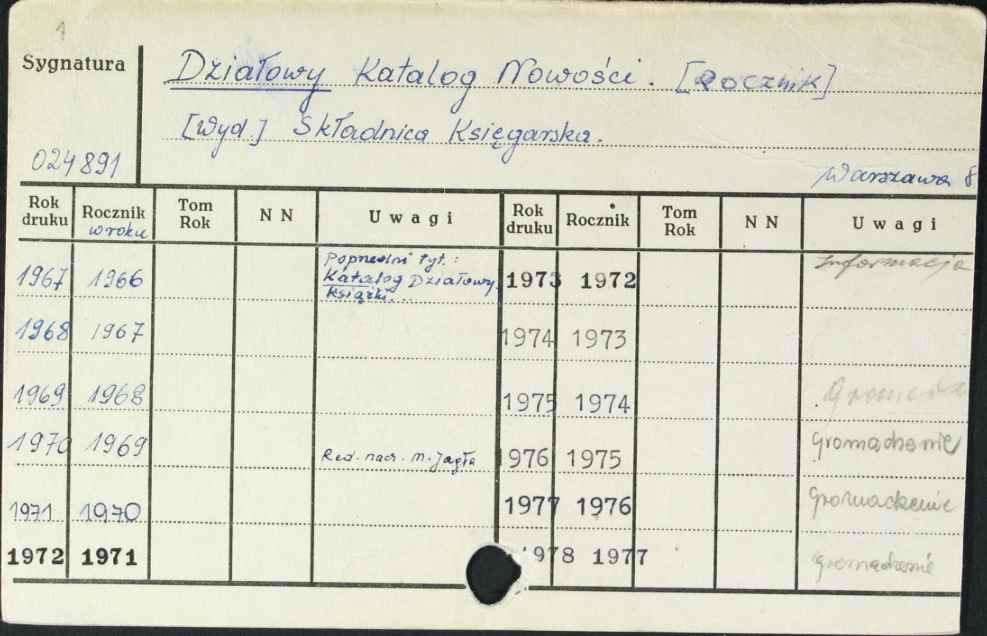 1
Sygnatura
Działowy Katalog Nowości. [Rocznik]
[Wyd] Składnica Księgarska.
024891
Warszawa 8
Rok druku Rocznik w roku Tom Rok N N Uwagi Rok druku Rocznik Tom Rok N N Uwagi
1967 1966 Poprzedni tyt.: Katalog Działowy Książki... 1973 1972 Informacja
1968 1967 1974 1973
1969 1968 1975 1974
1970 1969 Red. nacz. M. Jagła 1976 1975 Gromadzenie
1971 1970 1977 1976 Gromadzenie
1972 1971 1978 1977 Gromadzenie